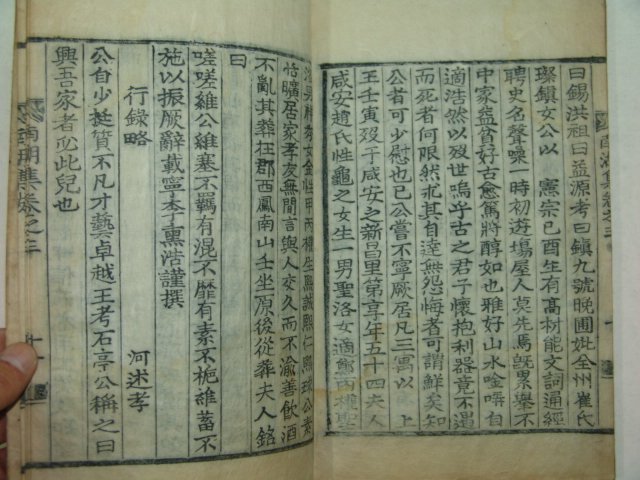 曰錫洪祖曰益源考曰鎭九號晚圃妣全州崔氏
璨鎭女公以 憲宗己酉生有高材能文詞通經
聘史名聲噪一時初遊塲屋人莫先焉旣累擧不
中家益貧好古愈篤將醇如也雅好山水唫嘯自
適浩然以歿世嗚乎古之君子懷抱利器竟不遇
而死者何限然求其自達無怨悔者可謂鮮矣知
公者可少慰也已公嘗不寧厥居凡三寓以 上
王壬寅歿于咸安之新昌里第享年五十四夫人
咸安趙氏性龜之女生一男聖洛女適
恬曠居家孝友無間言與人交久而不渝善飮酒
不亂其葬在郡西鳳南山壬坐原後從葬夫人銘
曰
嗟嗟維公維塞不羈有混不靡有素不梔維蓄不
施以振厥辭載寧李熏浩謹撰
行録略
河述孝
公自少挺質不凡才藝卓越王考石亭公稱之曰
興吾家者必此兒也